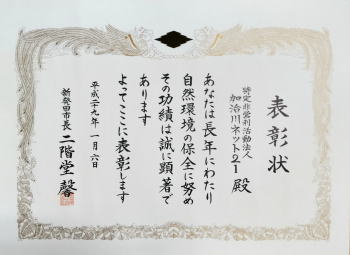 表彰状
特定非営利活動法人
加治川ネット21 殿
あなたは長年にわたり
自然環境の保全に努め
その功績は誠に顕著で
あります
よってここに表彰します
平成二十九年 一月 六日
新発田市長 二階堂 馨